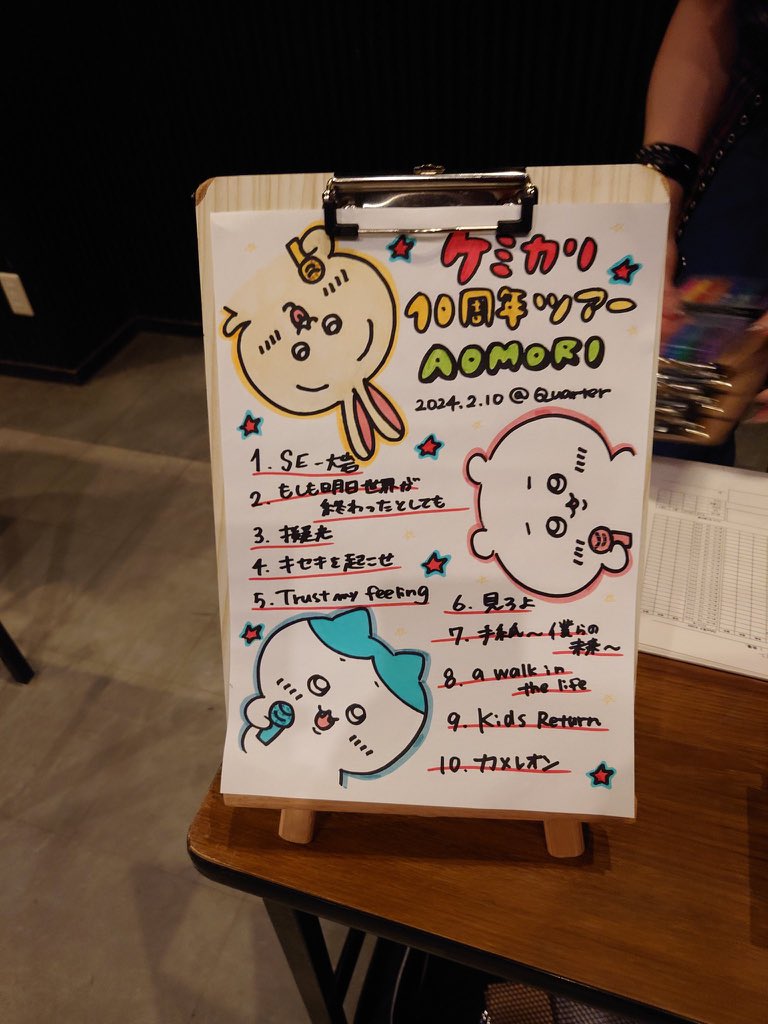 ケミカリ
10周年ツアー
AOMORI
2024.2.10 @ Quarter
1. SE -
2. もしも明日世界が
終わったとしても
3.
4. キセキを起こせ
5. Trust my feeling
6. 見ろよ
7. 手紙〜僕らの
未来〜
8. a walk in
the life
9. Kids Return
10. カメレオン